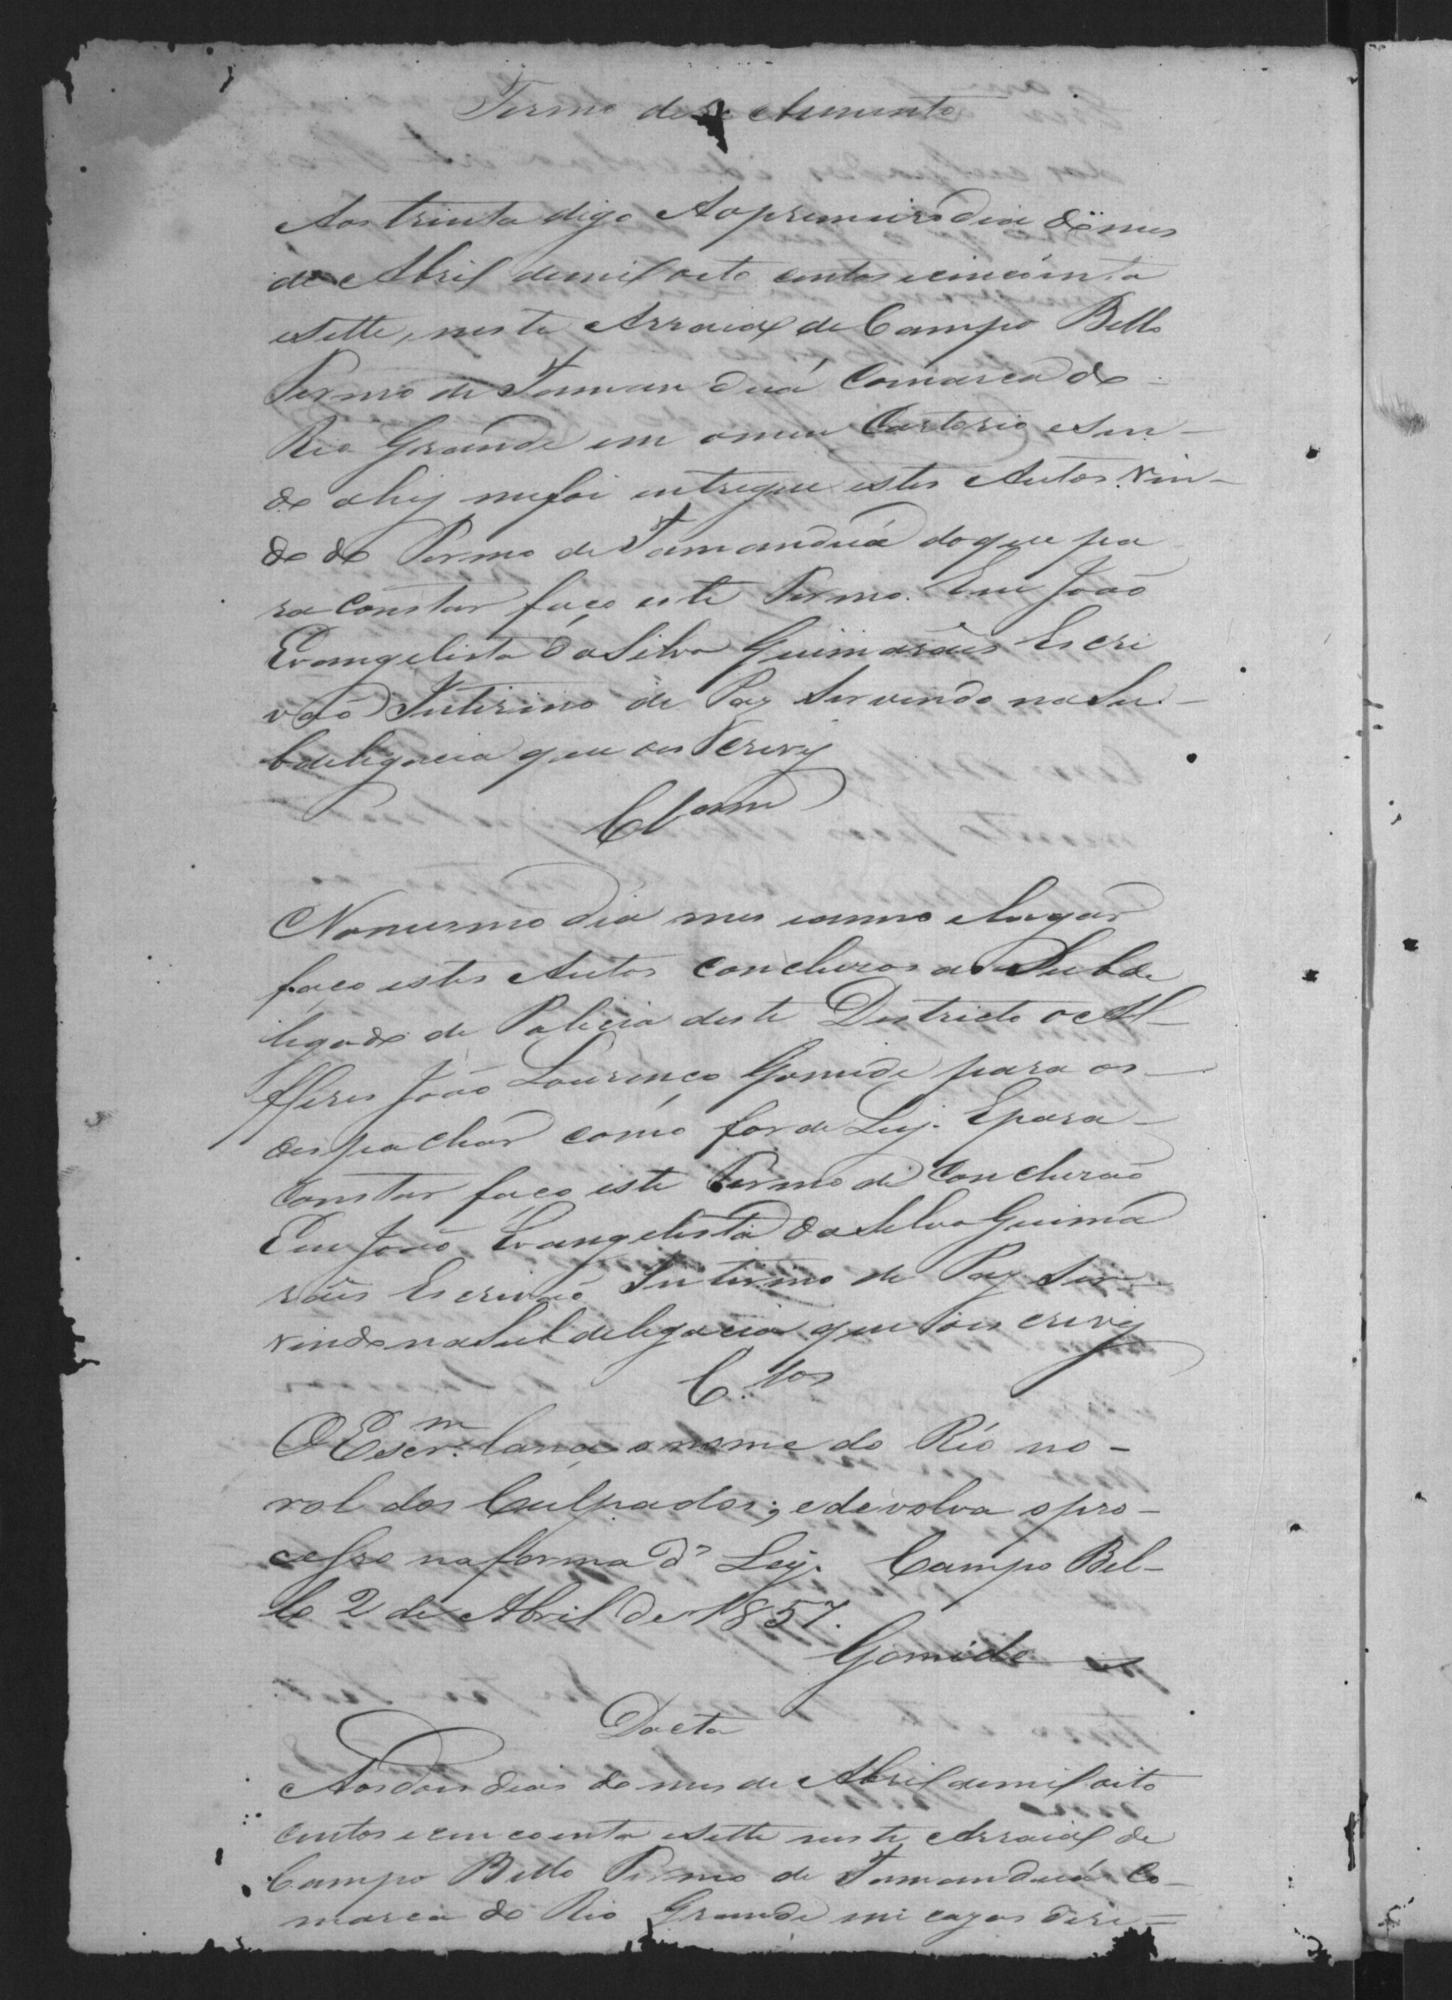 Termo de Aumento
Aos trinta digo Ao premeiro dia do mes
de Abril de mil oito centos e cincoenta
e sette, neste Arraial de Campo Bello
Termo de Tamanduá Comarca do
Rio Grande em o meu Cartorio, e sen-
do ahy me foi entregue estes Autos vin-
do do Termo de Tamanduá do que pa
ra constar faço este Termo. Eu João
Evangelista da Silva Guimarães Escri
vaõ Interino de Paz Servindo na Su-
bdeligacia que os escrevy
Clsam
No mesmo dia mes e anno e lugar
faço estes Autos Concluzos ao Subde
legado de Policia deste Destricto o Al-
fferes João Lourenço Gomide para os
despachar como for de Ley. E para
Constar faço este Termo de Concluzaõ
Eu João Evangelista da Silva Guima
rães Escrivaõ Interino de Paz Ser-
vindo na Subdeligacia que os escrevy
C.los
O Escr.m lança o nome do Réo no
rol dos Culpados; e devolva o pro-
cesso na forma d' Ley. Campo Bel-
lo 2 de Abril de 1857.
Gomide
Dacta
Aos dois deas do mes de Abril de mil oito
centos e cincoenta e sette neste Arraial de
Campo Bello Termo de Tamanduá Co-
marca do Rio Grande em cazas dizi=